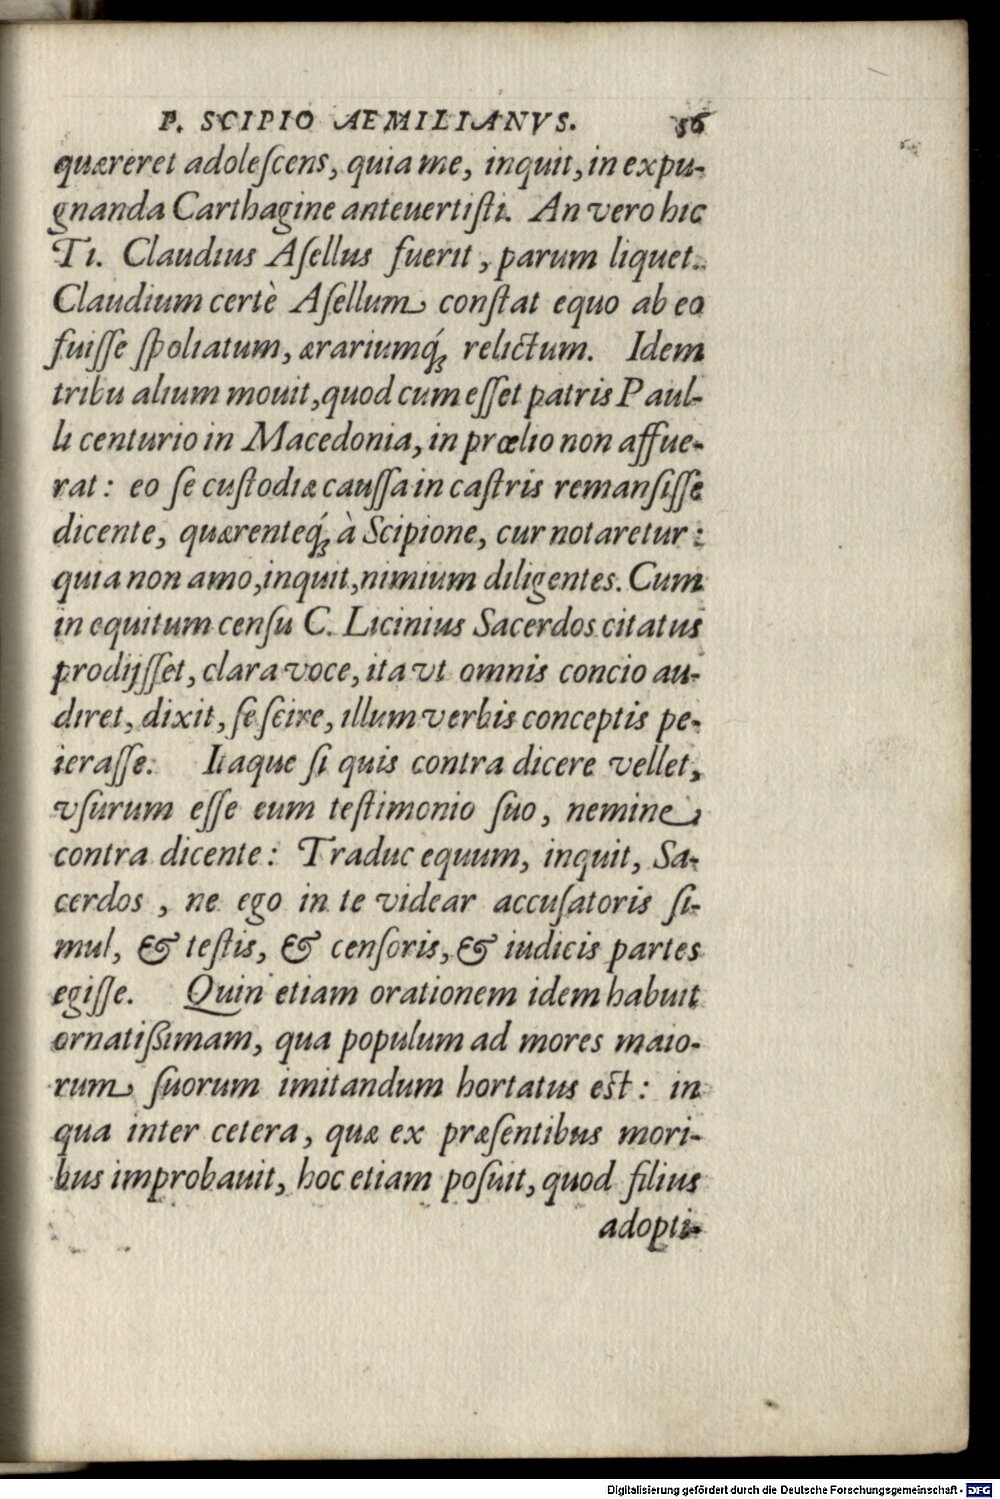 P. SCIPIO AEMILIANVS. 56
quæreret adoleſcens, quia me, inquit, in expu-
gnanda Carthagine anteuertiſti. An vero hic
Ti. Claudius Aſellus fuerit, parum liquet.
Claudium certè Aſellum conſtat equo ab eo
fuiſſe ſpoliatum, ærariumq́; relictum. Idem
tribu alium mouit, quod cum eſſet patris Paul-
li centurio in Macedonia, in prœlio non affue-
rat: eo ſe cuſtodiæ cauſſa in caſtris remanſiſſe
dicente, quærenteq́; à Scipione, cur notaretur:
quia non amo, inquit, nimium diligentes. Cum
in equitum cenſu C. Licinius Sacerdos citatus
prodijſſet, clara voce, ita vt omnis concio au-
diret, dixit, ſe ſcire, illum verbis conceptis pe-
ieraſſe. Itaque ſi quis contra dicere vellet,
vſurum eſſe eum teſtimonio ſuo, nemine
contra dicente: Traduc equum, inquit, Sa-
cerdos, ne ego in te videar accuſatoris ſi-
mul, & teſtis, & cenſoris, & iudicis partes
egiſſe. Quin etiam orationem idem habuit
ornatißimam, qua populum ad mores maio-
rum ſuorum imitandum hortatus est: in
qua inter cetera, quæ ex præſentibus mori-
bus improbauit, hoc etiam poſuit, quod filius
adopti-
Digitalisierung gefördert durch die Deutsche Forschungsgemeinschaft - DFG